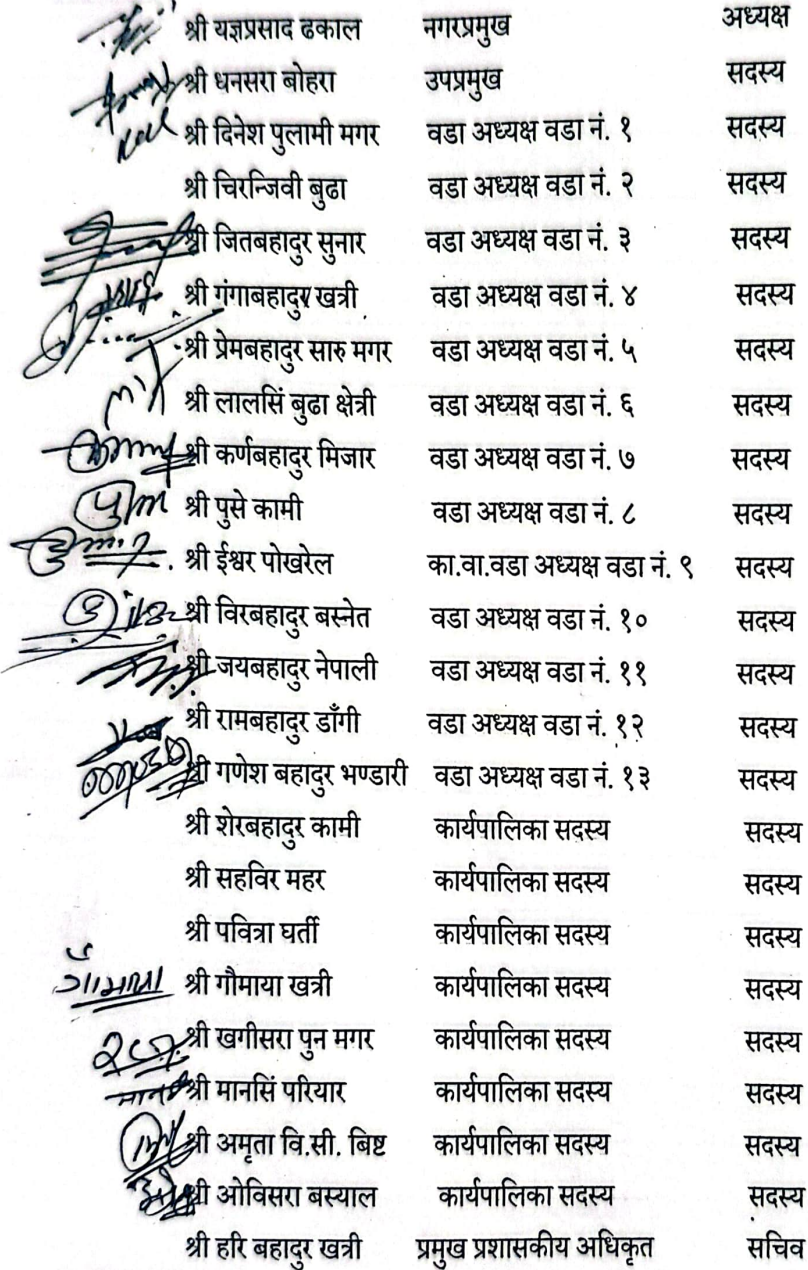 श्री यज्ञप्रसाद ढकाल नगरप्रमुख अध्यक्ष
श्री धनसरा बोहरा उपप्रमुख सदस्य
श्री दिनेश पुलामी मगर वडा अध्यक्ष वडा नं. १ सदस्य
श्री चिरन्जिवी बुढा वडा अध्यक्ष वडा नं. २ सदस्य
श्री जितबहादुर सुनार वडा अध्यक्ष वडा नं. ३ सदस्य
श्री गंगाबहादुर खत्री वडा अध्यक्ष वडा नं. ४ सदस्य
श्री प्रेमबहादुर सारु मगर वडा अध्यक्ष वडा नं. ५ सदस्य
श्री लालसिं बुढा क्षेत्री वडा अध्यक्ष वडा नं. ६ सदस्य
श्री कर्णबहादुर मिजार वडा अध्यक्ष वडा नं. ७ सदस्य
श्री पुसे कामी वडा अध्यक्ष वडा नं. ८ सदस्य
श्री ईश्वर पोखरेल का.वा.वडा अध्यक्ष वडा नं. ९ सदस्य
श्री विरबहादुर बस्नेत वडा अध्यक्ष वडा नं. १० सदस्य
श्री जयबहादुर नेपाली वडा अध्यक्ष वडा नं. ११ सदस्य
श्री रामबहादुर डाँगी वडा अध्यक्ष वडा नं. १२ सदस्य
श्री गणेश बहादुर भण्डारी वडा अध्यक्ष वडा नं. १३ सदस्य
श्री शेरबहादुर कामी कार्यपालिका सदस्य सदस्य
श्री सहविर महर कार्यपालिका सदस्य सदस्य
श्री पवित्रा घर्ती कार्यपालिका सदस्य सदस्य
श्री गौमाया खत्री कार्यपालिका सदस्य सदस्य
श्री खगीसरा पुन मगर कार्यपालिका सदस्य सदस्य
श्री मानसिं परियार कार्यपालिका सदस्य सदस्य
श्री अमृता वि.सी. बिष्ट कार्यपालिका सदस्य सदस्य
श्री ओविसरा बस्याल कार्यपालिका सदस्य सदस्य
श्री हरि बहादुर खत्री प्रमुख प्रशासकीय अधिकृत सचिव